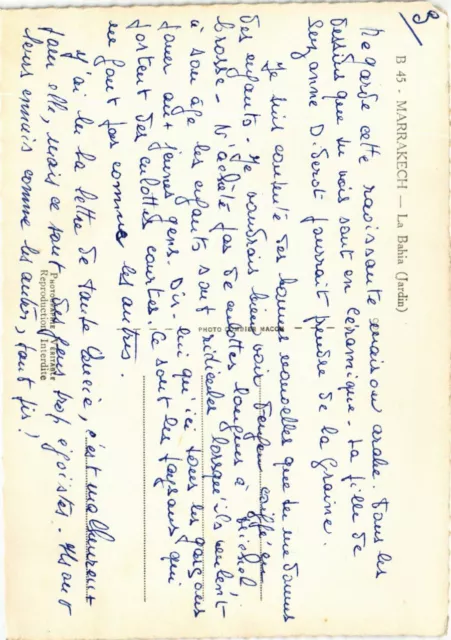 3
B 45 - MARRAKECH — La Bahia (Jardin)
Regarde cette ravissante maison arabe. Tous les
dessins que tu vois sont en céramique - La fille de
Suzanne D. pourrait prendre de la graine.
Je suis contente des bonnes nouvelles que tu me donnes
des enfants. Je voudrais bien voir coiffé en
brosse - N'achète pas de culottes longues à Michel
à son âge les enfants sont ridicules lorsqu'ils veulent
jouer aux jeunes gens. Dis-lui qu'ici tous les garçons
portent des culottes courtes. Ce sont les paysans qui
ne font pas comme les autres.
J'ai lu la lettre de tante Lucie, c'est malheureux
pour elle, mais ce sont des gens trop égoïstes - Ils ont
leurs ennuis comme les autres, tant pis !
PHOTO COMBIER MACON
PHOTOGRAPHIE VÉRITABLE
Reproduction Interdite